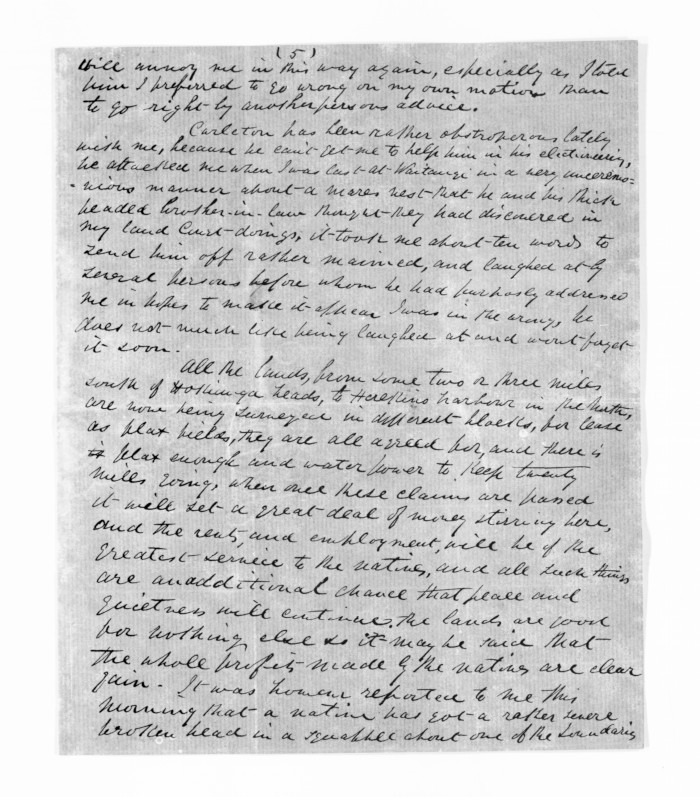 (5)
will annoy me in this way again, especially as I told
him I preferred to go wrong on my own motion than
to go right by another persons advice.
Carleton has been rather obstroperous lately
with me, because he can't get me to help him in his electioneering,
he attacked me when I was last at Waitangi in a very unceremo-
-nious manner about a mares nest that he and his thick
headed brother-in-law thought they had discovered in
my land Court doings, it took me about ten words to
send him off rather maimed, and laughed at by
several persons before whom he had purposly addressed
me in hopes to make it appear I was in the wrong, he
does not much like being laughed at and wont forget
it soon.
All the lands, from some two or three miles
south of Hokianga heads, to Herekino harbour in the North,
are now being surveyed in different blocks, for lease
as flax fields, they are all agreed for, and there is
flax enough and water power to keep twenty
mills going, when once these claims are passed
it will set a great deal of money stirring here,
and the rents, and employment, will be of the
greatest service to the natives, and all such things
are an additional chance that peace and
quietness will continue. the lands are good
for nothing else so it may be said that
the whole profits made by the natives are clear
gain. It was however reported to me this
morning that a native has got a rather severe
broken head in a squabble about one of the boundaries